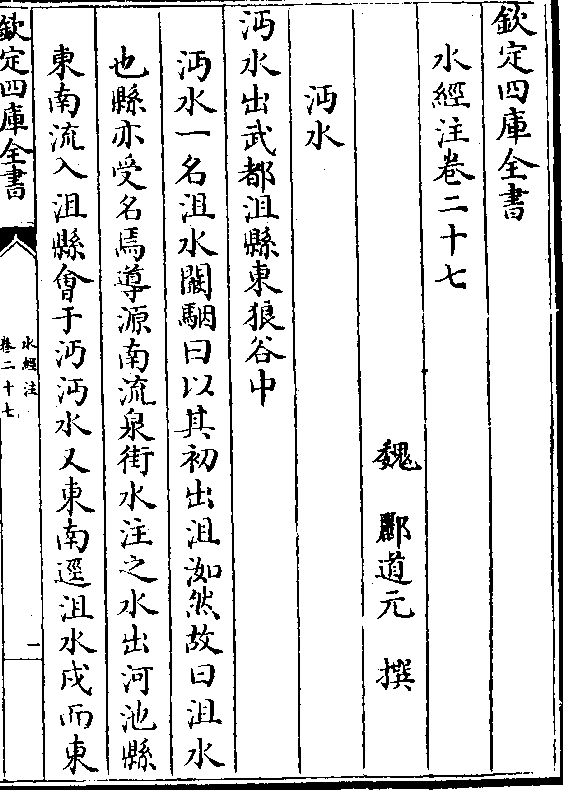 欽定四庫全書
水經注卷二十七
魏 酈道元 撰
沔水
沔水出武都沮縣東狼谷中
沔水一名沮水闞駰曰以其初出沮洳然故曰沮水
也縣亦受名焉導源南流泉街水注之水出河池縣
東南流入沮縣會于沔沔水又東南逕沮水戍而東
欽定四庫全書
水經注
卷二十七
一